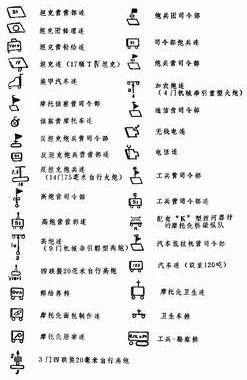 坦克营营部连
坦克团修理连
坦克营给给连
坦克连 (17辆TⅣ坦克)
装甲汽车连
摩托侦察营司令部
侦察营摩托车连
反坦克炮兵营司令部
反坦克炮兵营营部连
反坦克炮兵连
(14门75毫米自行火炮)
高炮营司令部
高炮营营部连
高炮连
(9门机械牵引轻型高炮)
四联装20毫米自行高炮
师给养科
摩托化面包制作连
摩托化屠宰连
3门四联装20毫米自行高炮
炮兵团司令部
司令部炮兵连
炮兵营司令部
加农炮连
(4门机械牵引重型火炮)
通信营司令部
无线电连
电话连
工兵营司令部
工兵营司令部连
配有“K”型渡河器材
的摩托化桥梁纵队
汽车监技队司令部
汽车连 (载重120吨)
摩托化卫生连
卫生车排
工兵-勘察排